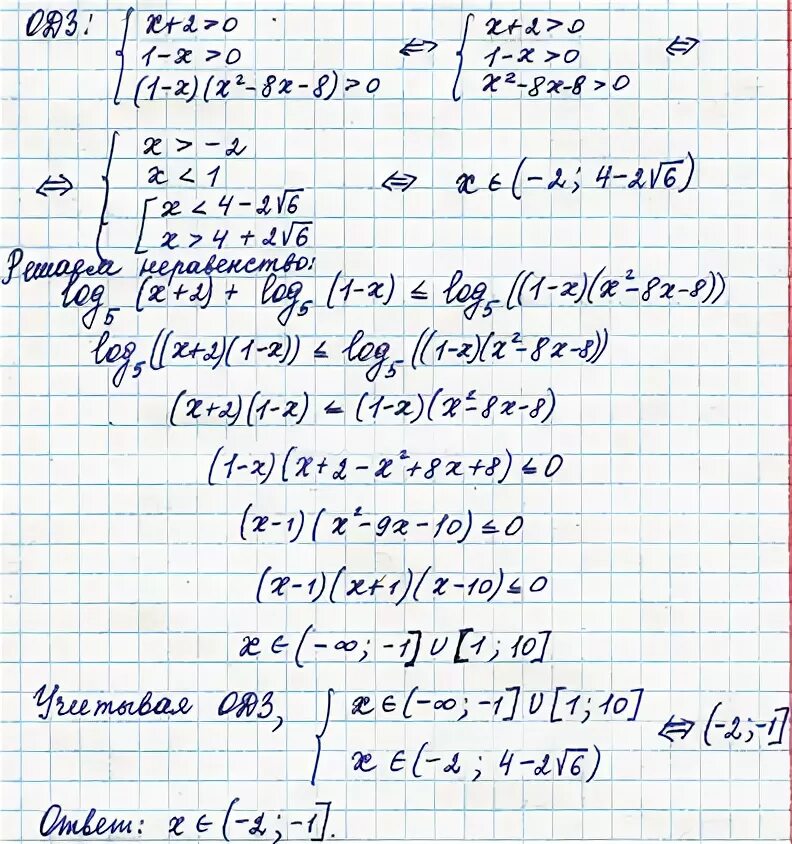 ОДЗ: { x+2>0 ⇔ { x+2>0 ⇔
1-x>0 1-x>0
(1-x)(x²-8x-8)>0 x²-8x-8>0
⇔ { x > -2 ⇔ x ∈ (-2; 4-2√6)
x < 1
[ x < 4-2√6
x > 4+2√6
Решаем неравенство:
log₅(x+2) + log₅(1-x) ≤ log₅((1-x)(x²-8x-8))
log₅((x+2)(1-x)) ≤ log₅((1-x)(x²-8x-8))
(x+2)(1-x) ≤ (1-x)(x²-8x-8)
(1-x)(x+2-x²+8x+8) ≤ 0
(x-1)(x²-9x-10) ≤ 0
(x-1)(x+1)(x-10) ≤ 0
x ∈ (-∞; -1] ∪ [1; 10]
Учитывая ОДЗ, { x ∈ (-∞; -1] ∪ [1; 10] ⇔ (-2; -1]
x ∈ (-2; 4-2√6)
Ответ: x ∈ (-2; -1].